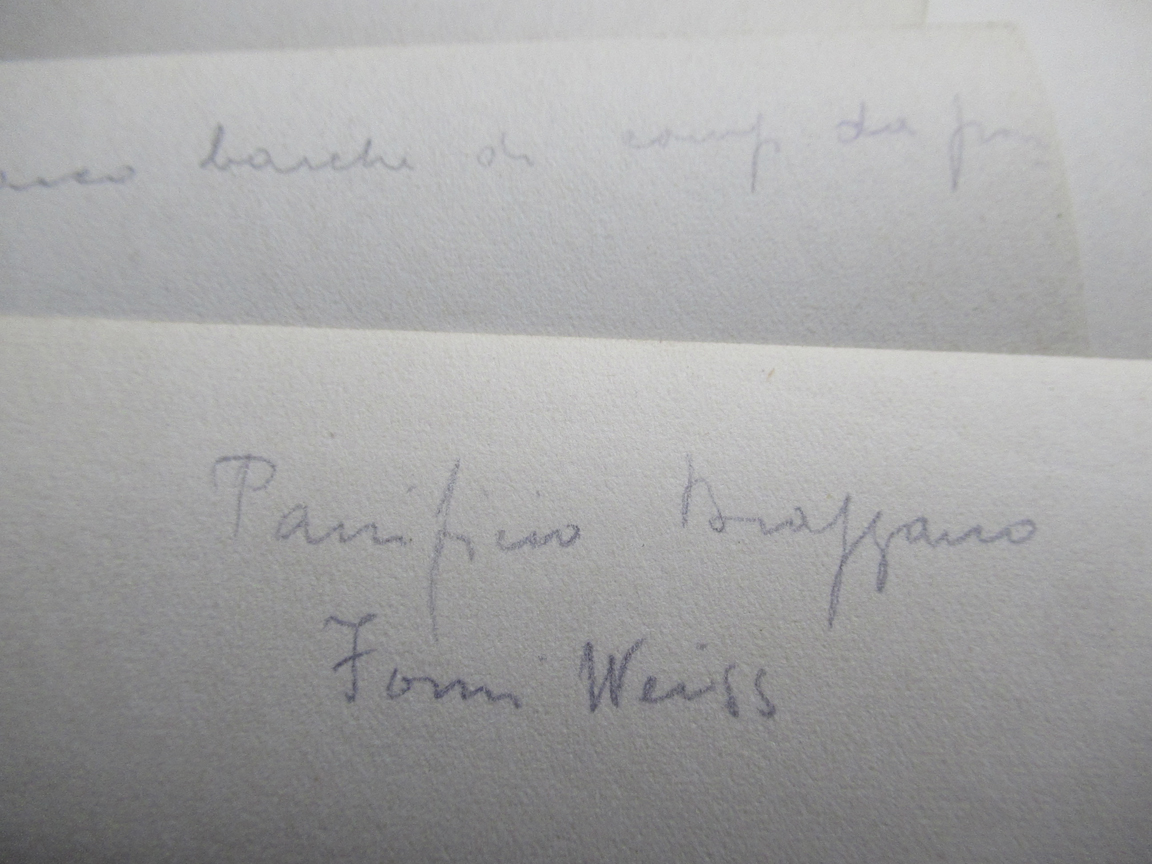 barche di comp da
Panificio Braggano
Forni Weiss